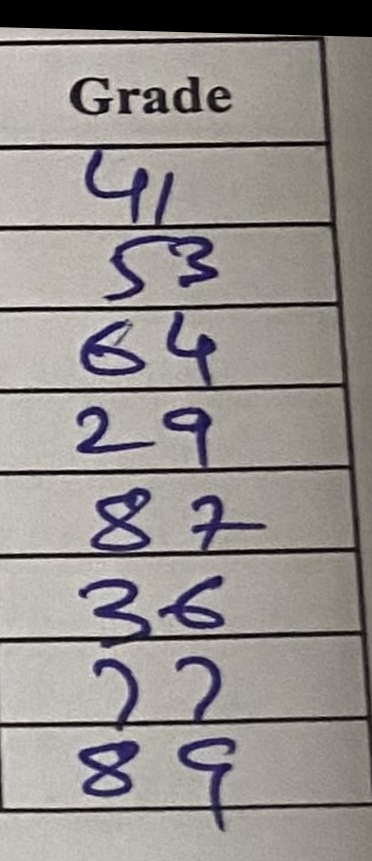 Grade
41
53
64
29
87
36
77
89